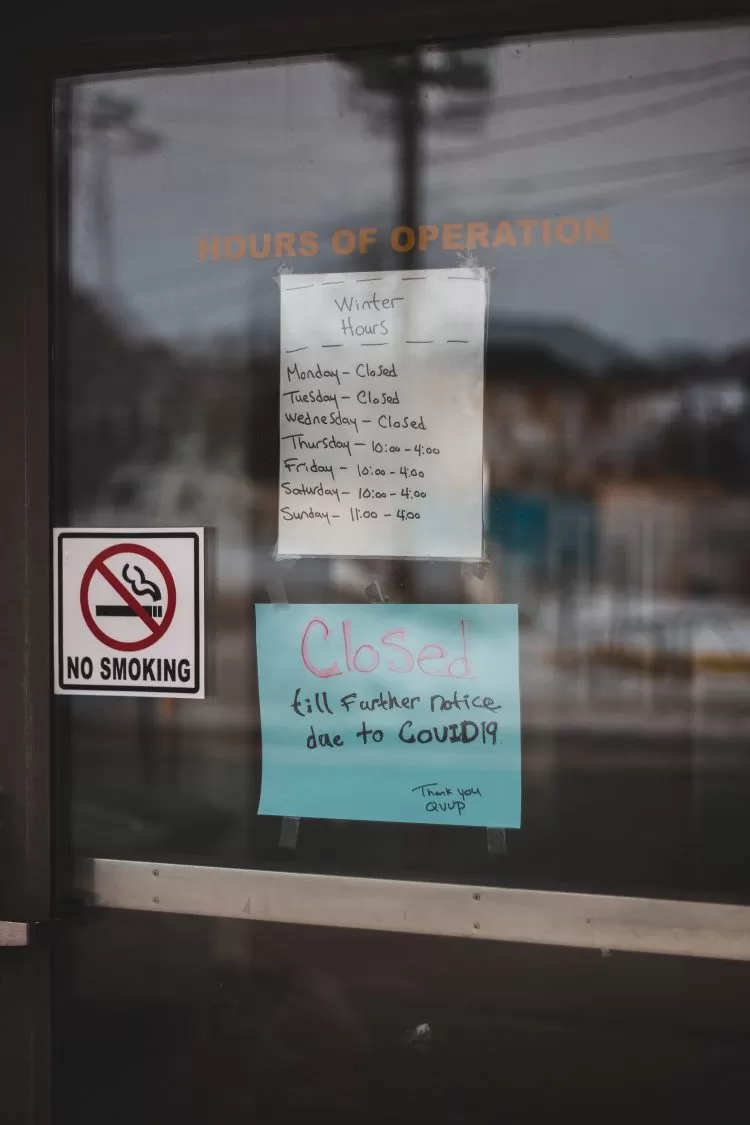 HOURS OF OPERATION
Winter
Hours
Monday - Closed
Tuesday - Closed
Wednesday - Closed
Thursday - 10:00 - 4:00
Friday - 10:00 - 4:00
Saturday - 10:00 - 4:00
Sunday - 11:00 - 4:00
NO SMOKING
Closed
till Further notice
due to COVID19
Thank you
QVUP